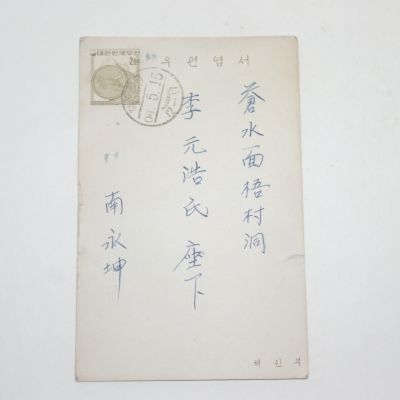 대한민국우표
우편엽서
蒼水面梧村洞
李元浩氏 座下
南永坤
체신부